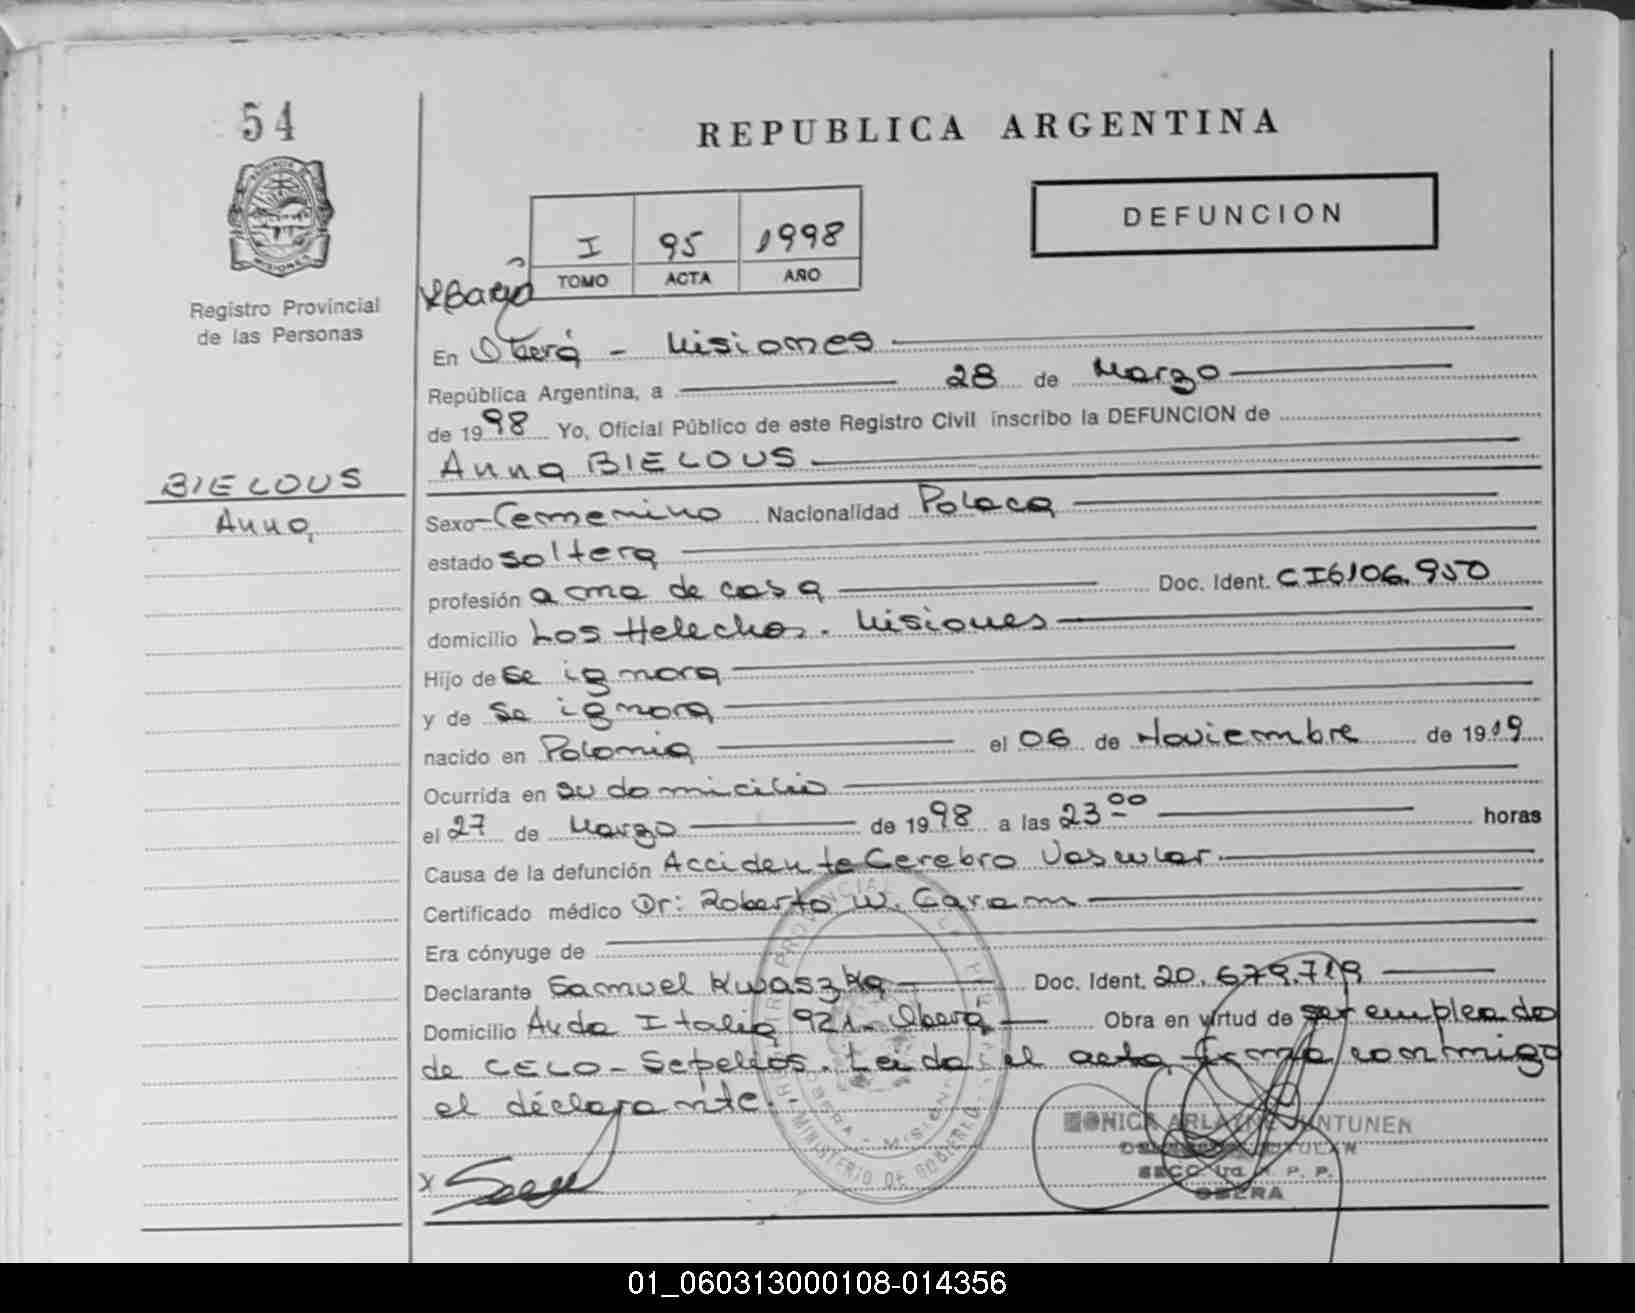 54
REPUBLICA ARGENTINA
DEFUNCION
I 95 1998
TOMO ACTA AÑO
MISIONES
Registro Provincial
de las Personas
En Oberá - Misiones
República Argentina, a 28 de Marzo
de 1998 Yo, Oficial Público de este Registro Civil inscribo la DEFUNCION de
Anna BIELOUS
BIELOUS
Anna
Sexo Femenino Nacionalidad Polaca
estado soltera
profesión ama de casa Doc. Ident. CI6106.950
domicilio Los Helechos. Misiones
Hijo de se ignora
y de se ignora
nacido en Polonia el 06 de Noviembre de 1919
Ocurrida en su domicilio
el 27 de Marzo de 1998 a las 23 00 horas
Causa de la defunción Accidente Cerebro Vascular.
Certificado médico Dr: Roberto W. Caram
Era cónyuge de
Declarante Samuel Kwaszka Doc. Ident. 20.679.719
Domicilio Avda Italia 921- Obera Obra en virtud de ser empleado
de CELO - Sepelios. Leida el acta firma conmigo
el declarante.
MONICA ARLAINE JUNTUNEN
OBERA
X
MINISTERIO DE GOBIERNO
OBERA - MISIONES
01_060313000108-014356